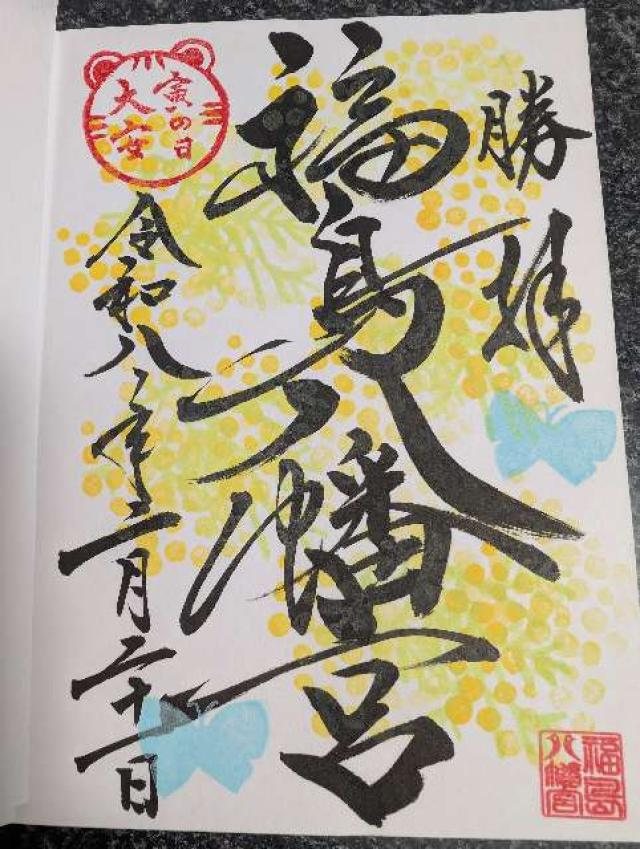 勝拝
福島八幡宮
寅の日
大安
令和八年二月二十一日
福島
八幡宮